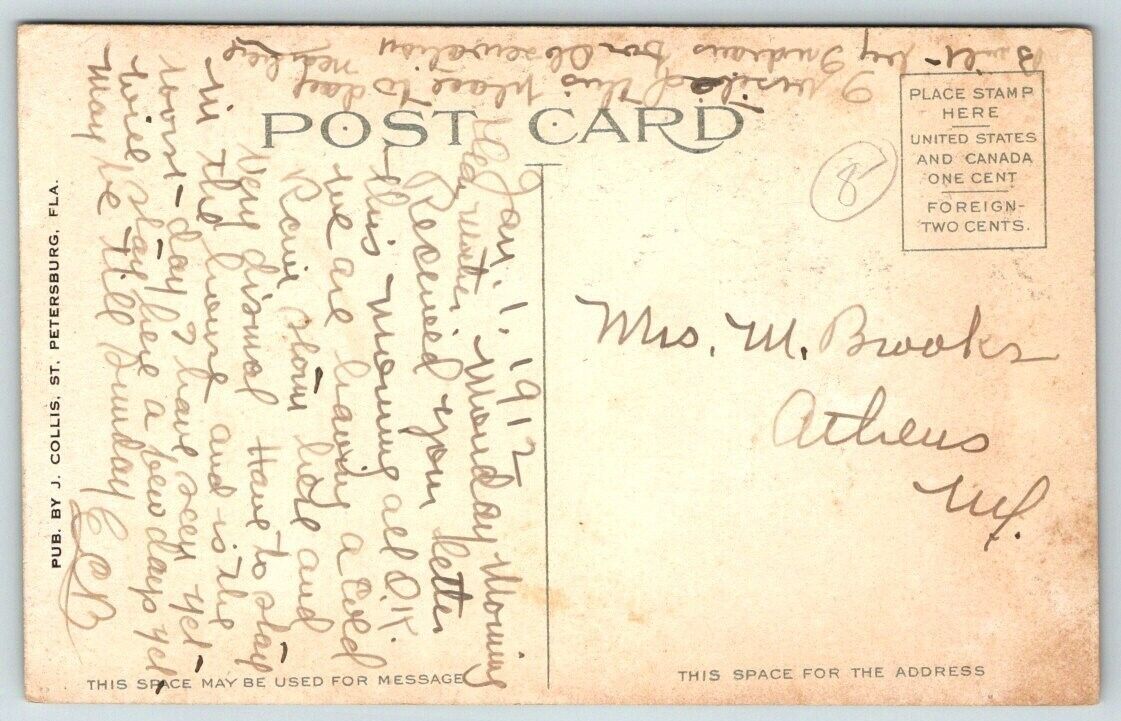 Built by Indians for Observation
I visited this place to day
POST CARD
PLACE STAMP
HERE
UNITED STATES
AND CANADA
ONE CENT
FOREIGN-
TWO CENTS.
8
Jan. 1. 1912 Monday Morning
Dear Mother
Received your letter
this Morning all O.K.
we are having a Cold
Rain storm here and
Very dismal Have to stay
in the house and is the
worst day I have seen yet
will stay here a few days yet
May be till Sunday ECB
Mrs. M. Brooks
Athens
PUB. BY J. COLLIS, ST. PETERSBURG, FLA.
THIS SPACE MAY BE USED FOR MESSAGE
THIS SPACE FOR THE ADDRESS